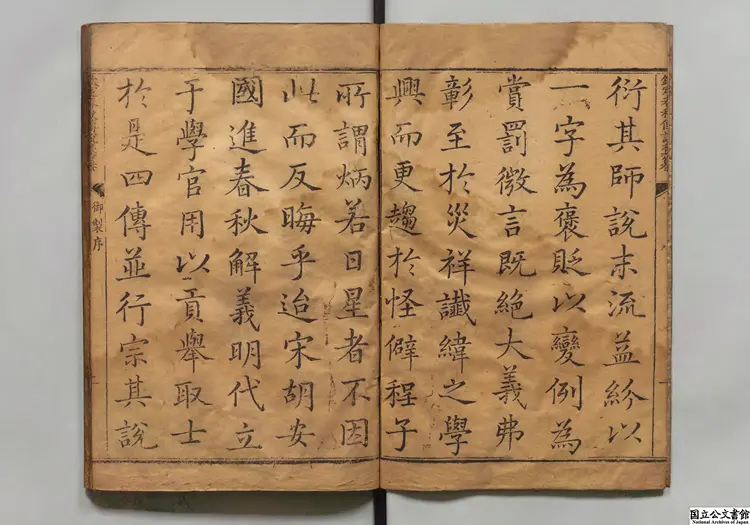 衍其師說末流益紛以
一字為褒貶以變例為
賞罰微言既絕大義弗
彰至於災祥讖緯之學
興而更趨於怪僻程子
所謂炳若日星者不因
此而反晦乎迨宋胡安
國進春秋解義明代立
于學官用以貢舉取士
於是四傳並行宗其說
御製序
国立公文書館
National Archives of Japan